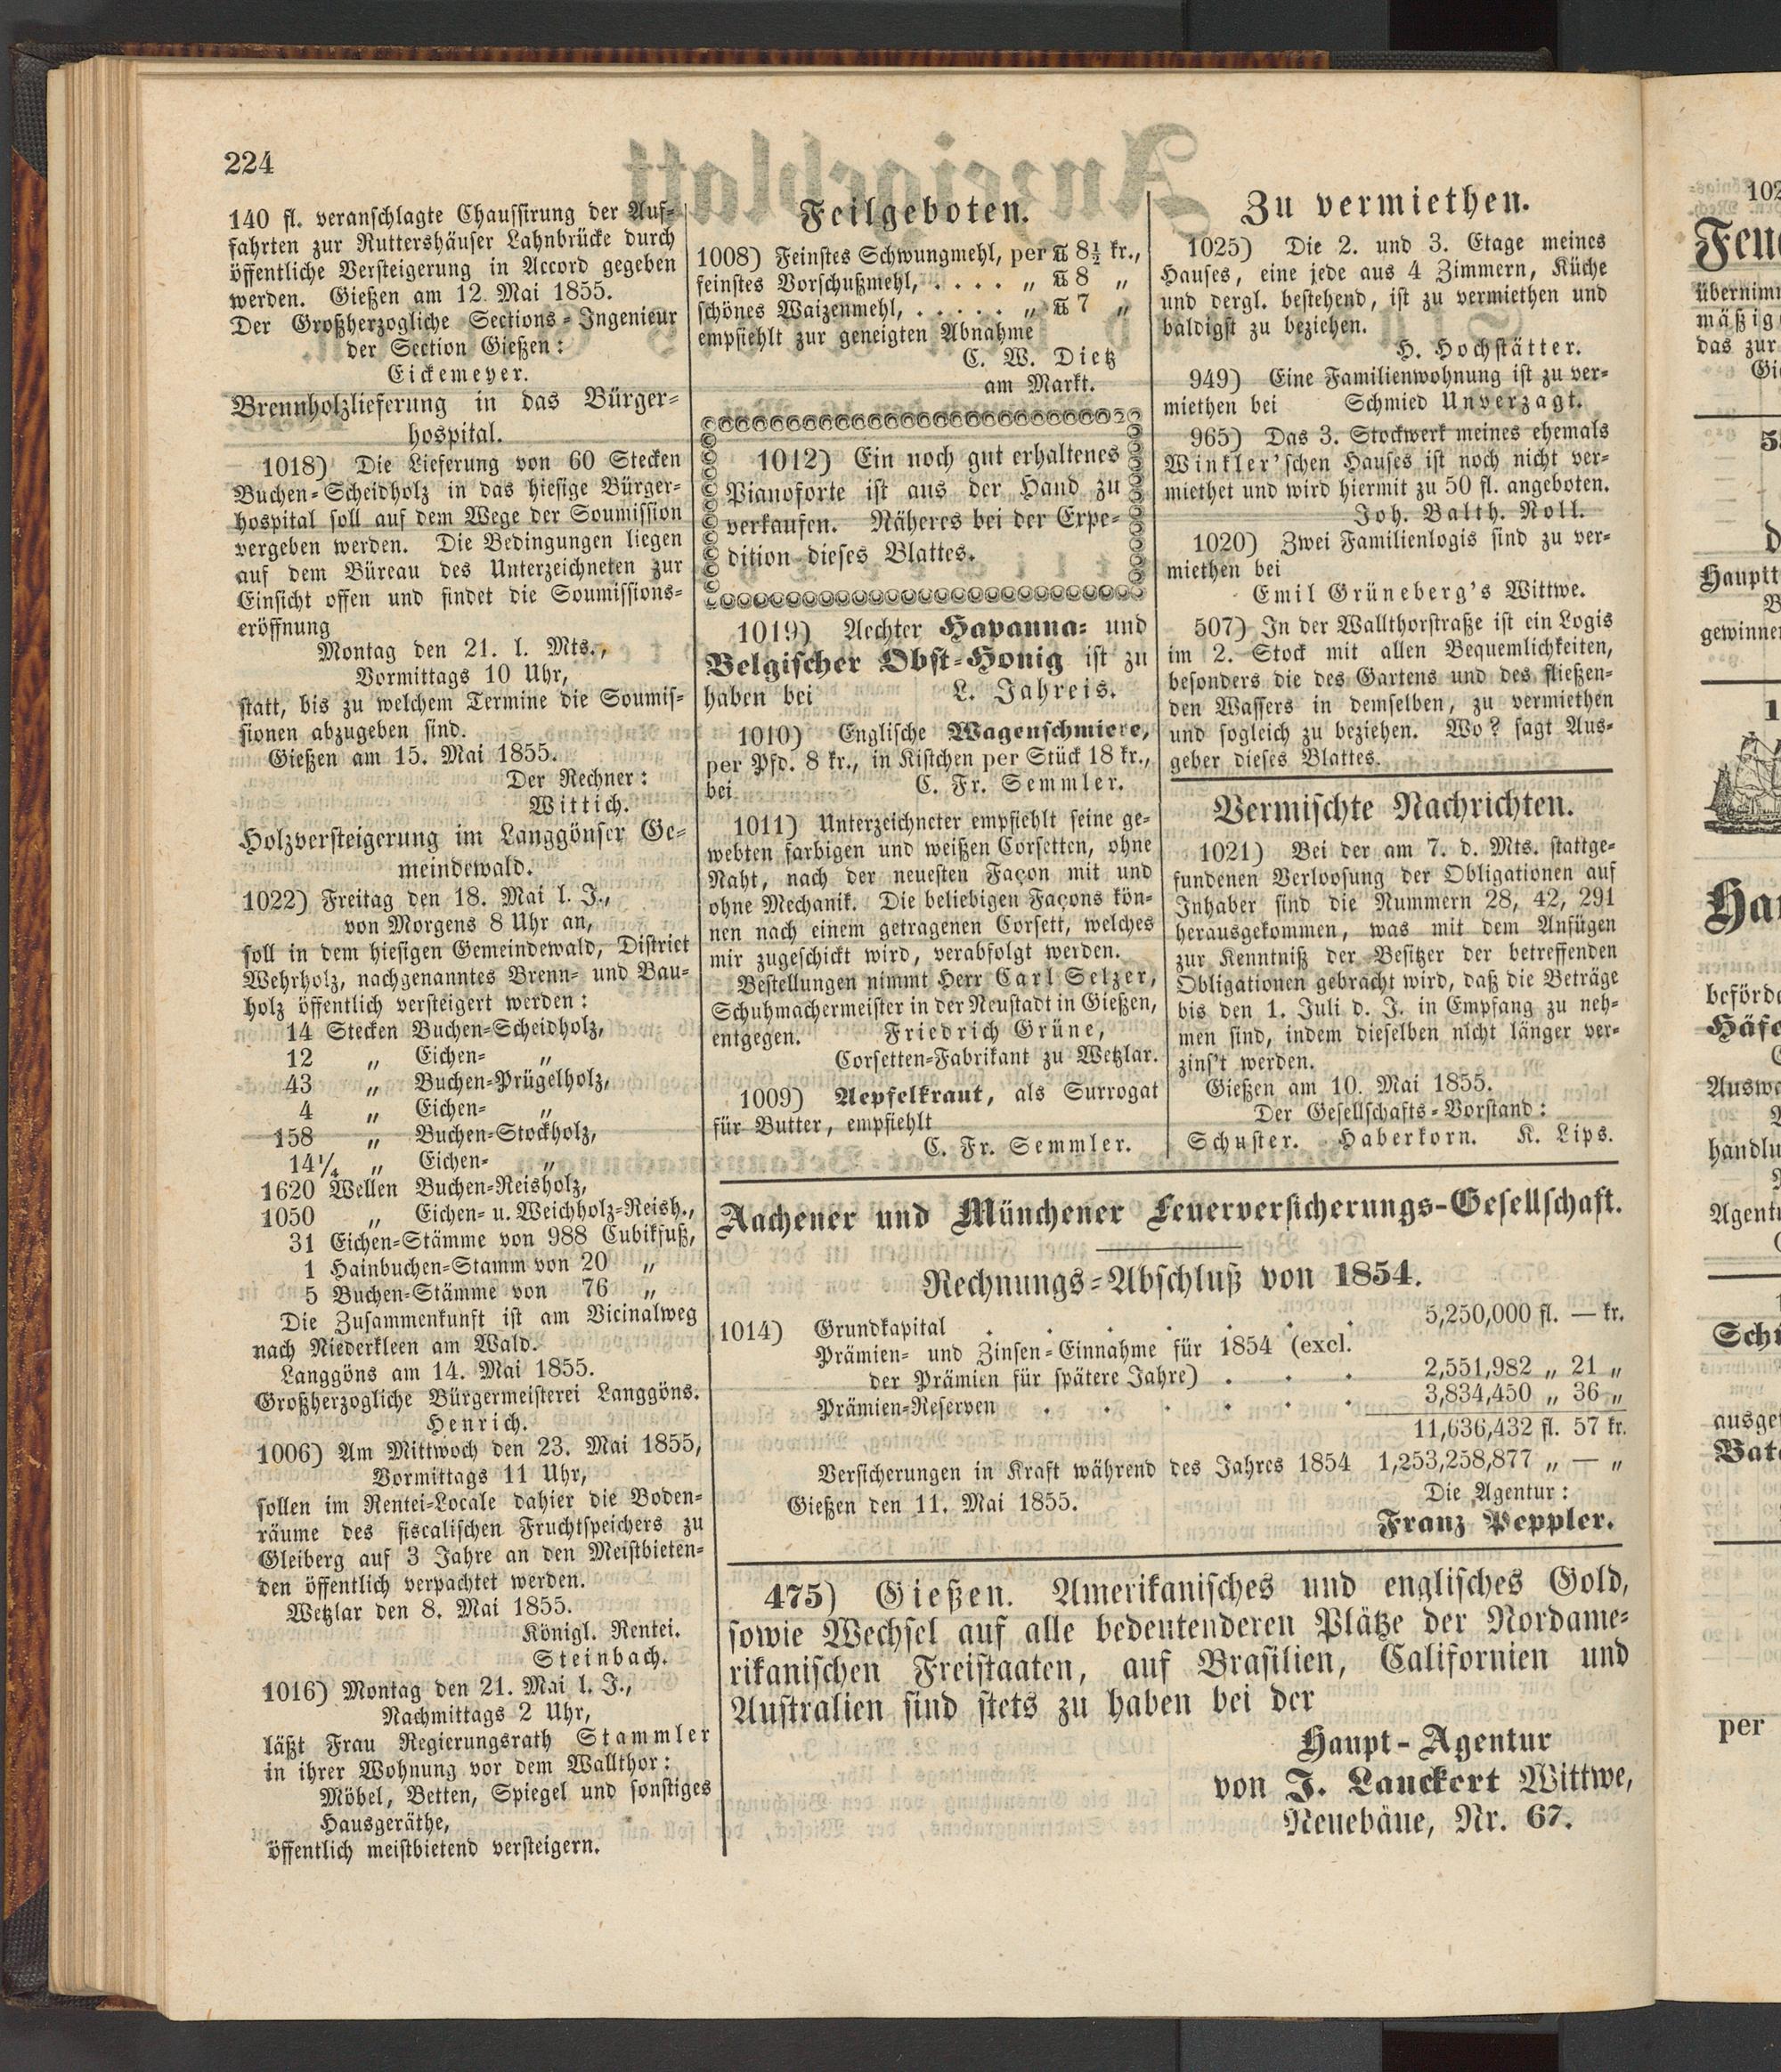 224
140 fl. veranschlagte Chaussirung der Auf-
fahrten zur Ruttershäuser Lahnbrücke durch
öffentliche Versteigerung in Accord gegeben
werden. Gießen am 12. Mai 1855.
Der Großherzogliche Sections-Ingenieur
der Section Gießen:
Eickemeyer.
Brennholzlieferung in das Bürger-
hospital.
1018) Die Lieferung von 60 Stecken
Buchen-Scheidholz in das hiesige Bürger-
hospital soll auf dem Wege der Soumission
vergeben werden. Die Bedingungen liegen
auf dem Büreau des Unterzeichneten zur
Einsicht offen und findet die Soumissions-
eröffnung
Montag den 21. l. Mts.,
Vormittags 10 Uhr,
statt, bis zu welchem Termine die Soumis-
sionen abzugeben sind.
Gießen am 15. Mai 1855.
Der Rechner:
Wittich.
Holzversteigerung im Langgönser Ge-
meindewald.
1022) Freitag den 18. Mai l. J.,
von Morgens 8 Uhr an,
soll in dem hiesigen Gemeindewald, District
Wehrholz, nachgenanntes Brenn- und Bau-
holz öffentlich versteigert werden:
14 Stecken Buchen-Scheidholz,
12 „ Eichen- „
43 „ Buchen-Prügelholz,
4 „ Eichen- „
158 „ Buchen-Stockholz,
14¼ „ Eichen- „
1620 Wellen Buchen-Reisholz,
1050 „ Eichen- u. Weichholz-Reish.,
31 Eichen-Stämme von 988 Cubikfuß,
1 Hainbuchen-Stamm von 20 „
5 Buchen-Stämme von 76 „
Die Zusammenkunft ist am Vicinalweg
nach Niederkleen am Wald.
Langgöns am 14. Mai 1855.
Großherzogliche Bürgermeisterei Langgöns.
Henrich.
1006) Am Mittwoch den 23. Mai 1855,
Vormittags 11 Uhr,
sollen im Rentei-Locale dahier die Boden-
räume des fiscalischen Fruchtspeichers zu
Gleiberg auf 3 Jahre an den Meistbieten-
den öffentlich verpachtet werden.
Wetzlar den 8. Mai 1855.
Königl. Rentei.
Steinbach.
1016) Montag den 21. Mai l. J.,
Nachmittags 2 Uhr,
läßt Frau Regierungsrath Stammler
in ihrer Wohnung vor dem Wallthor:
Möbel, Betten, Spiegel und sonstiges
Hausgeräthe,
öffentlich meistbietend versteigern.
Feilgeboten.
1008) Feinstes Schwungmehl, per ℔ 8½ kr.,
feinstes Vorschußmehl, . . . . „ ℔ 8 „
schönes Waizenmehl, . . . . . „ ℔ 7 „
empfiehlt zur geneigten Abnahme
C. W. Dietz
am Markt.
1012) Ein noch gut erhaltenes
Pianoforte ist aus der Hand zu
verkaufen. Näheres bei der Expe-
dition dieses Blattes.
1019) Aechter Havanna- und
Belgischer Obst-Honig ist zu
haben bei L. Jahreis.
1010) Englische Wagenschmiere,
per Pfd. 8 kr., in Kistchen per Stück 18 kr.,
bei C. Fr. Semmler.
1011) Unterzeichneter empfiehlt seine ge-
webten farbigen und weißen Corsetten, ohne
Naht, nach der neuesten Façon mit und
ohne Mechanik. Die beliebigen Façons kön-
nen nach einem getragenen Corsett, welches
mir zugeschickt wird, verabfolgt werden.
Bestellungen nimmt Herr Carl Selzer,
Schuhmachermeister in der Neustadt in Gießen,
entgegen. Friedrich Grüne,
Corsetten-Fabrikant zu Wetzlar.
1009) Aepfelkraut, als Surrogat
für Butter, empfiehlt
C. Fr. Semmler.
Zu vermiethen.
1025) Die 2. und 3. Etage meines
Hauses, eine jede aus 4 Zimmern, Küche
und dergl. bestehend, ist zu vermiethen und
baldigst zu beziehen.
H. Hochstätter.
949) Eine Familienwohnung ist zu ver-
miethen bei Schmied Unverzagt.
965) Das 3. Stockwerk meines ehemals
Winkler'schen Hauses ist noch nicht ver-
miethet und wird hiermit zu 50 fl. angeboten.
Joh. Balth. Noll.
1020) Zwei Familienlogis sind zu ver-
miethen bei
Emil Grüneberg's Wittwe.
507) In der Wallthorstraße ist ein Logis
im 2. Stock mit allen Bequemlichkeiten,
besonders die des Gartens und des fließen-
den Wassers in demselben, zu vermiethen
und sogleich zu beziehen. Wo? sagt Aus-
geber dieses Blattes.
Vermischte Nachrichten.
1021) Bei der am 7. d. Mts. stattge-
fundenen Verloosung der Obligationen auf
Inhaber sind die Nummern 28, 42, 291
herausgekommen, was mit dem Anfügen
zur Kenntniß der Besitzer der betreffenden
Obligationen gebracht wird, daß die Beträge
bis den 1. Juli d. J. in Empfang zu neh-
men sind, indem dieselben nicht länger ver-
zins't werden.
Gießen am 10. Mai 1855.
Der Gesellschafts-Vorstand:
Schuster. Haberkorn. K. Lips.
Aachener und Münchener Feuerversicherungs-Gesellschaft.
Rechnungs-Abschluß von 1854.
1014) Grundkapital . . . . . . . 5,250,000 fl. — kr.
Prämien- und Zinsen-Einnahme für 1854 (excl.
der Prämien für spätere Jahre) . . . 2,551,982 „ 21 „
Prämien-Reserven . . . . . . 3,834,450 „ 36 „
11,636,432 fl. 57 kr.
Versicherungen in Kraft während des Jahres 1854 1,253,258,877 „ — „
Gießen den 11. Mai 1855.
Die Agentur:
Franz Peppler.
475) Gießen. Amerikanisches und englisches Gold,
sowie Wechsel auf alle bedeutenderen Plätze der Nordame-
rikanischen Freistaaten, auf Brasilien, Californien und
Australien sind stets zu haben bei der
Haupt-Agentur
von J. Lanckert Wittwe,
Neuebäue, Nr. 67.